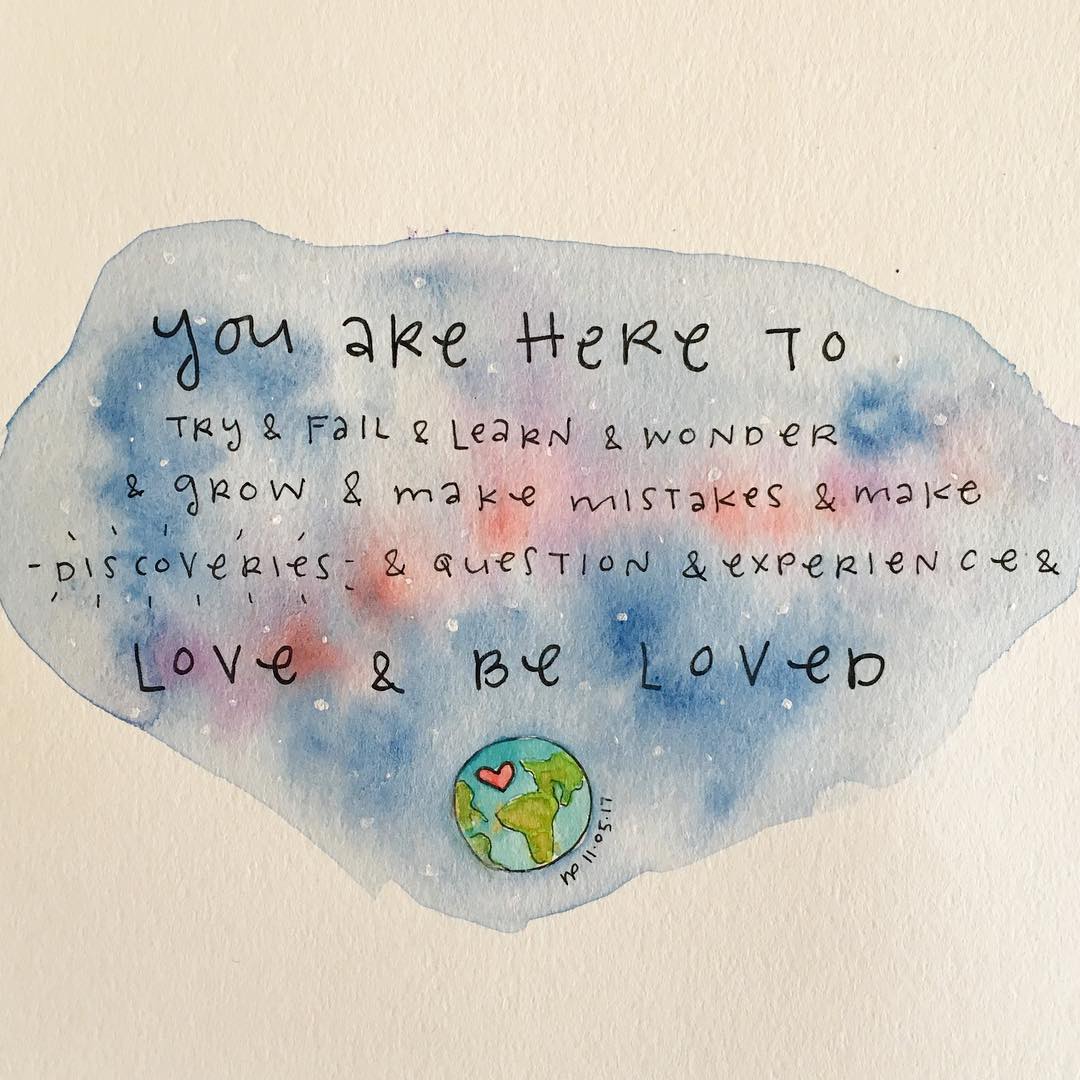 you are Here To
Try & Fail & Learn & wonder
& grow & make mistakes & make
-Discoveries- & question & experience &
Love & Be Loved
np 11.05.17